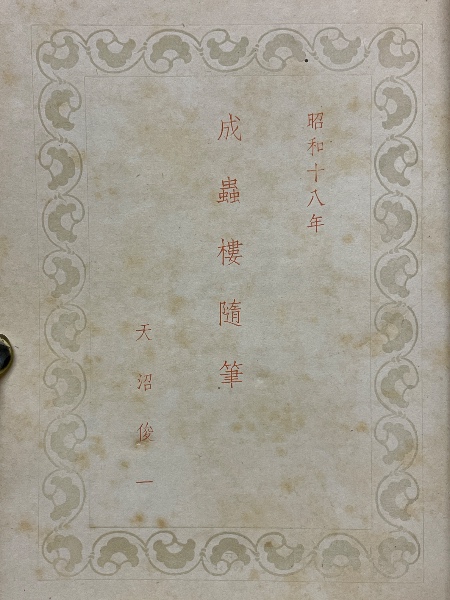 昭和十八年
成蟲樓隨筆
天沼俊一